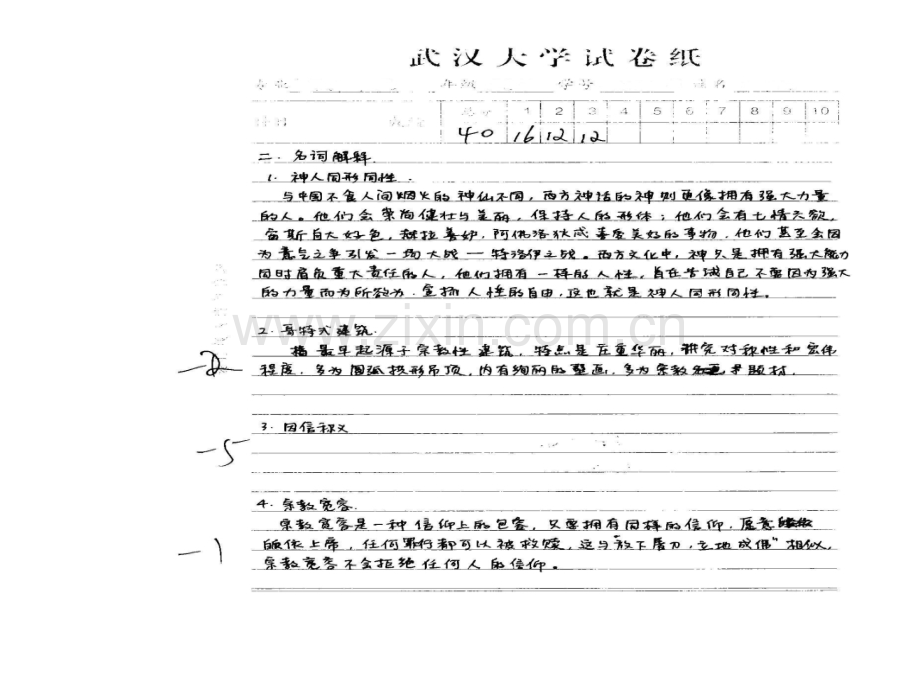 武汉大学试卷纸
专业 年级 学号 姓名
总分 1 2 3 4 5 6 7 8 9 10
40 16 12 12
二、名词解释
1. 神人同形同性.
与中国不食人间烟火的神仙不同，西方神话的神则更像拥有强大力量
的人。他们会崇尚健壮与美丽，保持人的形体；他们会有七情六欲，
宙斯自大好色，赫拉善妒，阿佛洛狄忒喜爱美好的事物，他们甚至会因
为意气之争引发一场大战——特洛伊之战。西方文化中，神只是拥有强大能力
同时肩负重大责任的人，他们拥有一样的人性，旨在告诫自己不要因为强大
的力量而为所欲为，宣扬人性的自由，这也就是神人同形同性。
2. 哥特式建筑.
指最早起源于宗教性建筑，特点是庄重华丽，讲究对称性和宏伟
程度，多为圆弧拱形吊顶，内有绚丽的壁画，多为宗教题材.
-2
3. 因信称义
-5
4. 宗教宽容
宗教宽容是一种信仰上的包容，只要拥有同样的信仰，愿意
皈依上帝，任何罪行都可以被救赎，这与“放下屠刀，立地成佛”相似，
宗教宽容不会拒绝任何人的信仰。
-1
www.zixin.com.cn